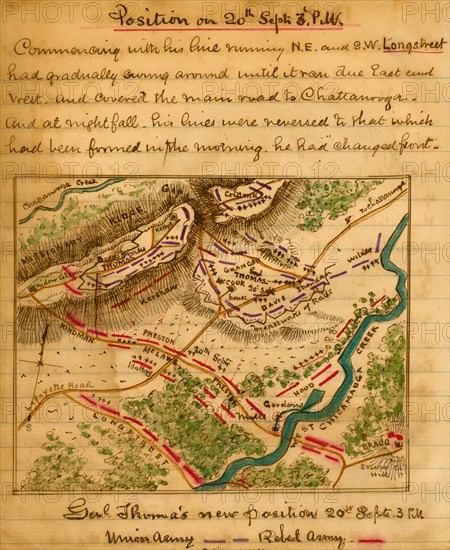 Position on 20th Sept: 3 P.M.
Commencing with his line running N.E. and S.W. Longstreet
had gradually swung around until it ran due East and
West. and covered the main road to Chattanooga.
And at nightfall. his lines were reversed to that which
had been formed in the morning. he had "changed front.
Chattanooga Creek
Gap
Crittenden
To Chattanooga
MISSIONARY RIDGE
THOMAS
Wilder
GRANGER
THOMAS
COOK 20th Sept
Sheridan
DAVIS
house
Kershaw
HINDMAN
PRESTON
McLAWS
20th Sept
Buckner
La Fayette Road
HOOD
Gordons
Mill
WEST CHICKAMAUGA CREEK
LONGSTREET
BRAGG
Hill
S
Genl Thomas's new position 20th Sept. 3 P.M
Union Army Rebel Army